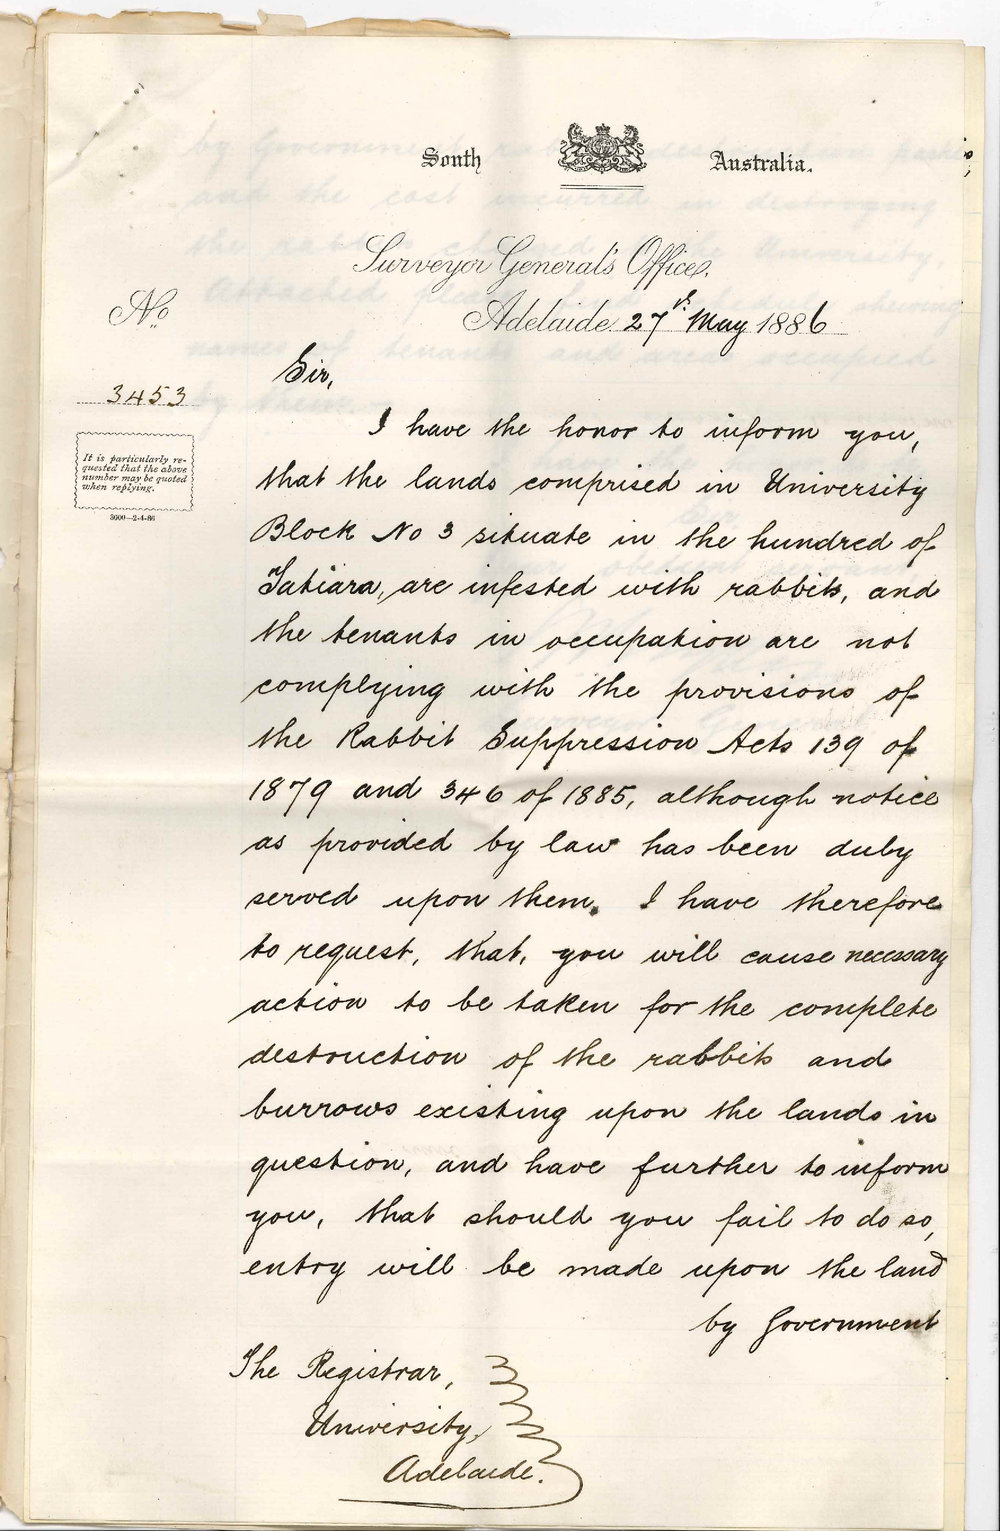 South Australia.
Surveyor General's Office,
Adelaide 27th May 1886
No.
3453
It is particularly re-
quested that the above
number may be quoted
when replying.
3000—2-4-86
Sir,
I have the honor to inform you,
that the lands comprised in University
Block No 3 situate in the hundred of
Tatiara, are infested with rabbits, and
the tenants in occupation are not
complying with the provisions of
the Rabbit Suppression Acts 139 of
1879 and 346 of 1885, although notice
as provided by law has been duly
served upon them. I have therefore
to request, that, you will cause necessary
action to be taken for the complete
destruction of the rabbits and
burrows existing upon the lands in
question, and have further to inform
you, that should you fail to do so,
entry will be made upon the land
by Government
The Registrar,
University,
Adelaide.